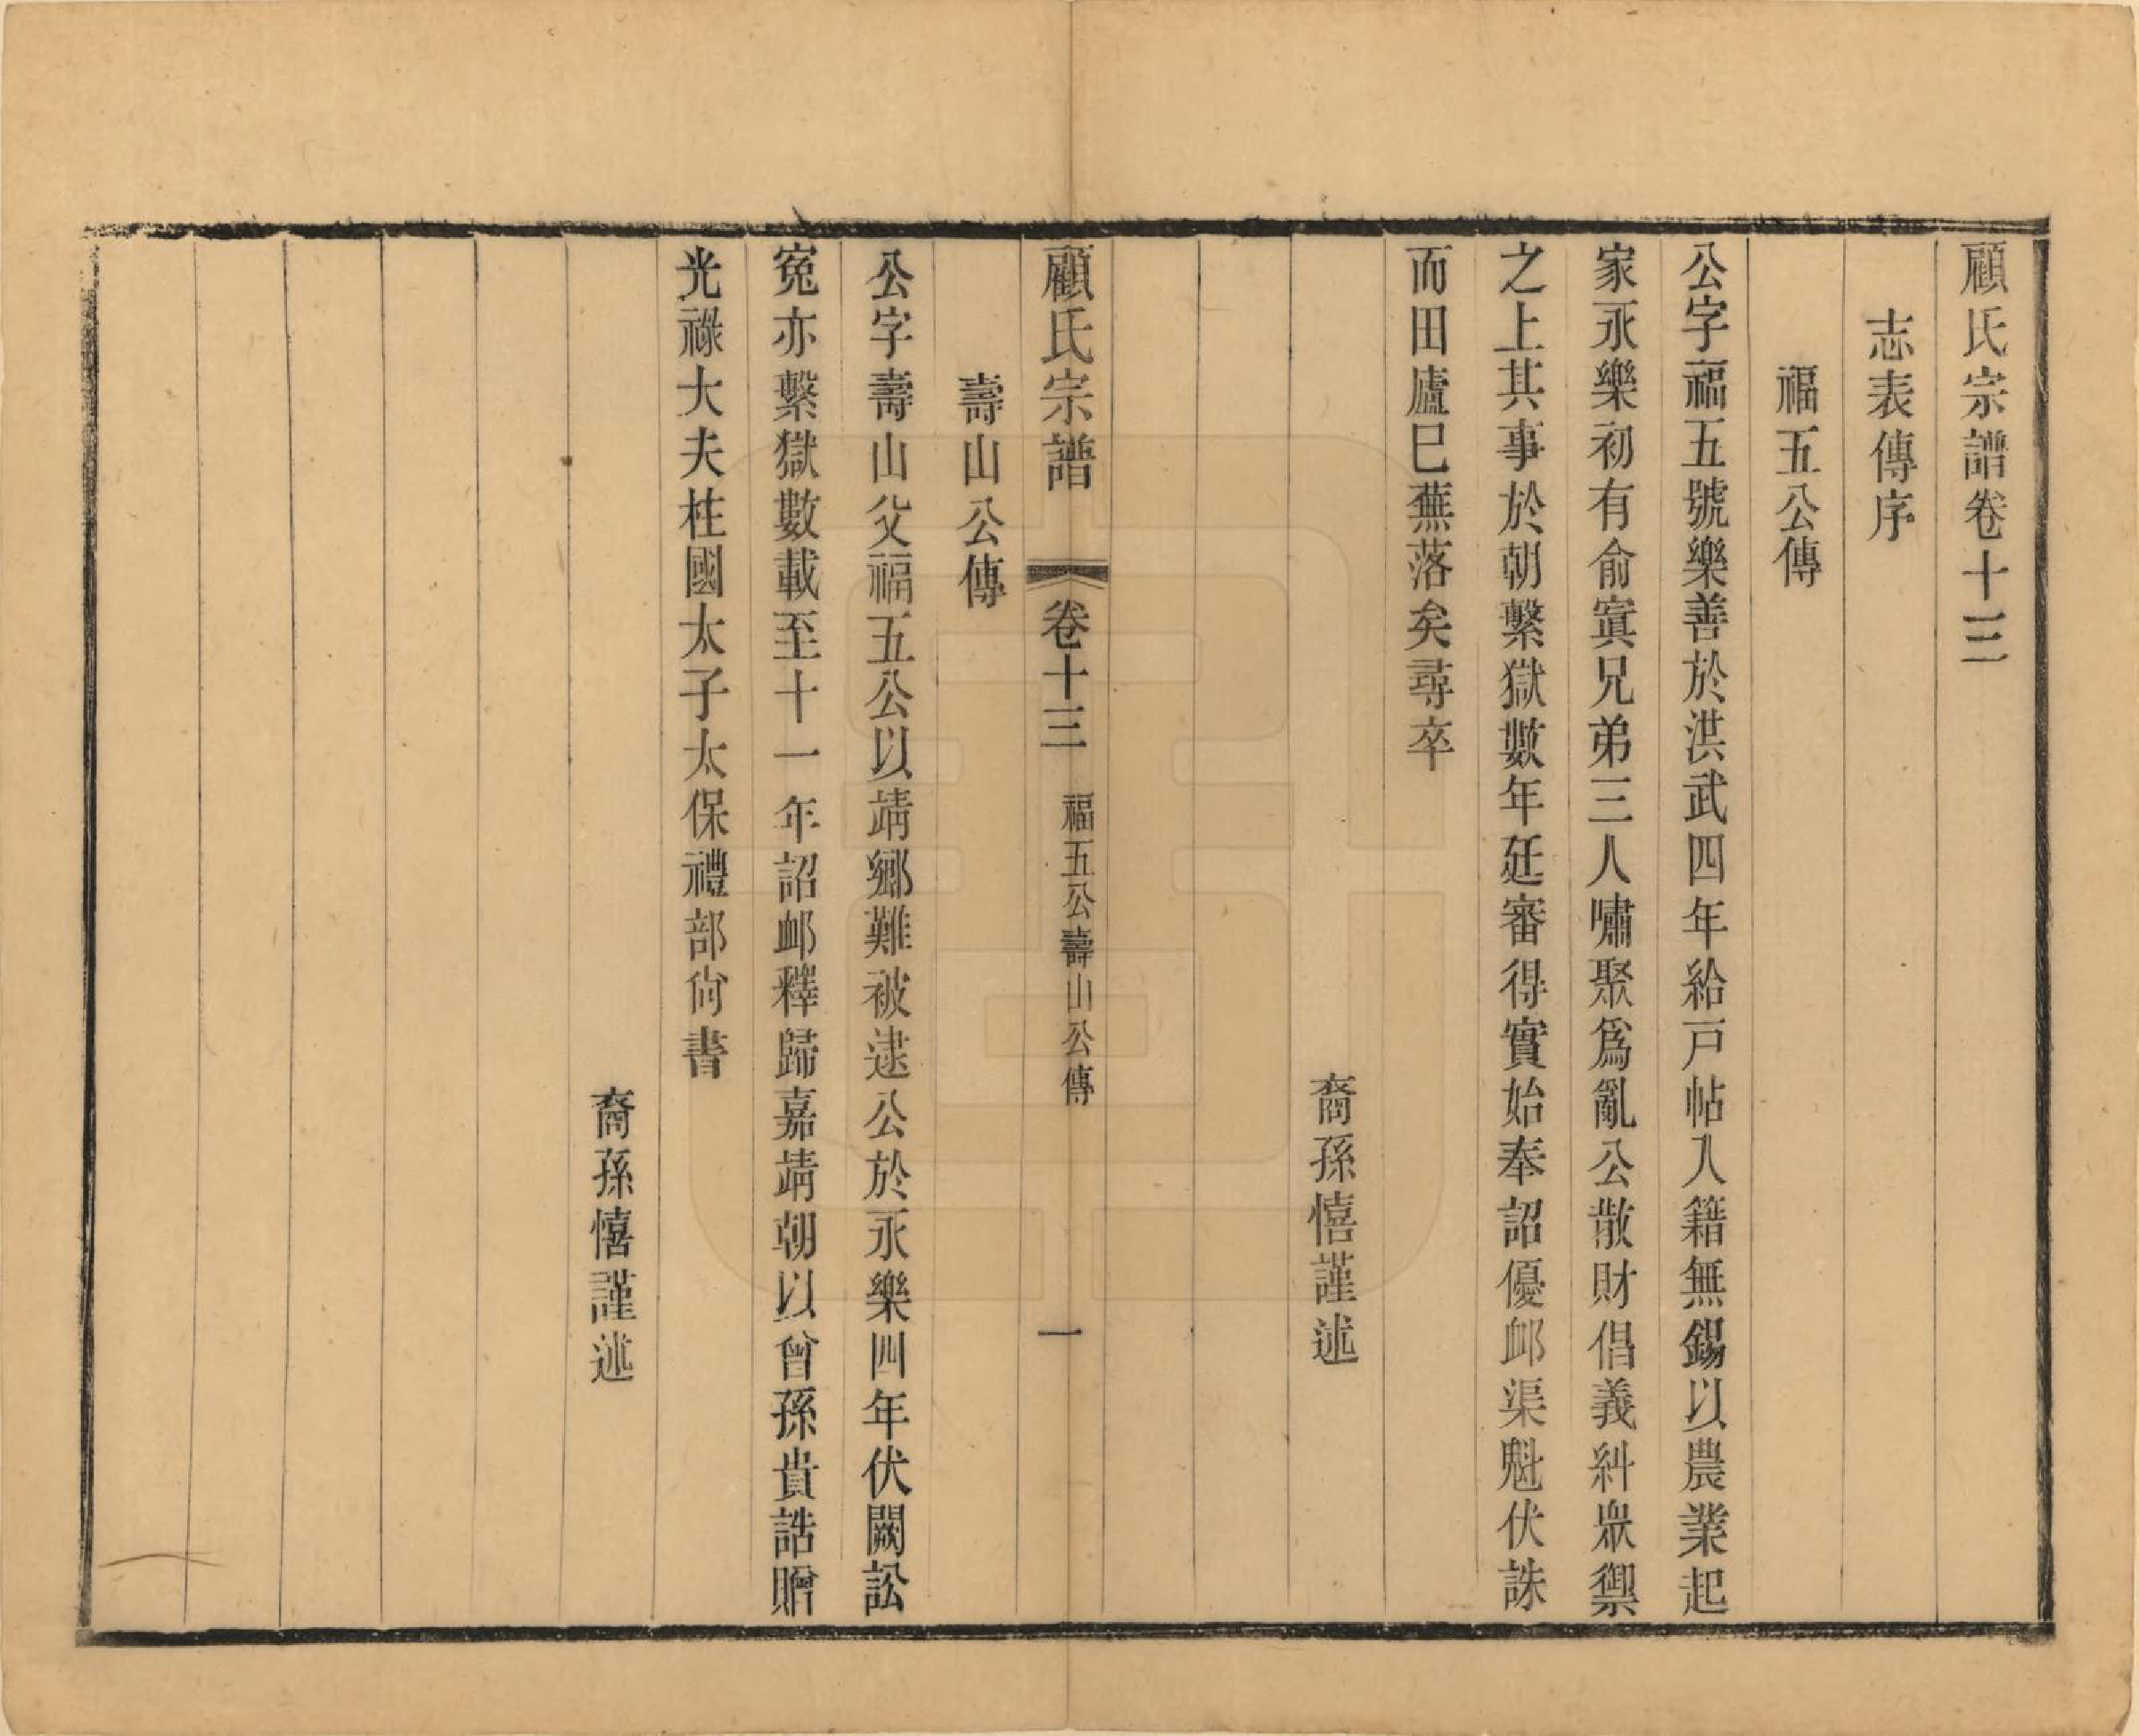 顧氏宗譜卷十三
志表傳序
福五公傳
公字福五號樂善於洪武四年給戸帖入籍無錫以農業起
家永樂初有俞寘兄弟三人嘯聚爲亂公散財倡義糾衆禦
之上其事於朝繫獄數年廷審得實始奉詔優邮渠魁伏誅
而田廬巳蕪落矣尋卒
裔孫僖謹述
顧氏宗譜
卷十三
福五公壽山公傳
一
壽山公傳
公字壽山父福五公以靖鄉難被逮公於永樂四年伏闕訟
寃亦繫獄數載至十一年詔邮釋歸嘉靖朝以曾孫貴誥贈
光祿大夫柱國太子太保禮部尙書
裔孫僖謹述